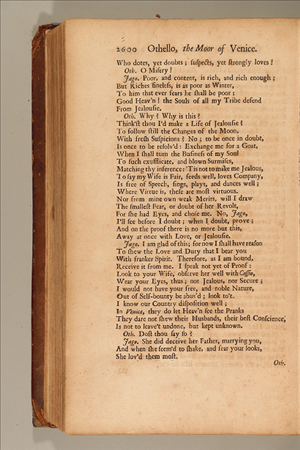 2600 Othello, the Moor of Venice.
Who dotes, yet doubts; suspects, yet strongly loves!
Oth. O Misery!
Jago. Poor, and content, is rich, and rich enough;
But Riches fineless, is as poor as Winter,
To him that ever fears he shall be poor:
Good Heav'n! the Souls of all my Tribe defend
From Jealousie.
Oth. Why? Why is this?
Think'st thou I'd make a Life of Jealousie?
To follow still the Changes of the Moon,
With fresh Suspicions? No; to be once in doubt,
Is once to be resolv'd: Exchange me for a Goat,
When I shall turn the Business of my Soul
To such exsufflicate, and blown Surmises,
Matching thy inference: 'Tis not to make me Jealous,
To say my Wife is Fair, feeds well, loves Company,
Is free of Speech, sings, plays, and dances well;
Where Virtue is, these are most virtuous.
Nor from mine own weak Merits, will I draw
The smallest Fear, or doubt of her Revolt,
For she had Eyes, and chose me. No, Jago,
I'll see before I doubt; when I doubt, prove;
And on the proof there is no more but this,
Away at once with Love, or Jealousie.
Jago. I am glad of this; for now I shall have reason
To shew the Love and Duty that I bear you
With franker Spirit. Therefore, as I am bound,
Receive it from me. I speak not yet of Proof:
Look to your Wife, observe her well with Cassio,
Wear your Eyes, thus; not Jealous, nor Secure;
I would not have your free, and noble Nature,
Out of Self-bounty be abus'd; look to't.
I know our Country disposition well;
In Venice, they do let Heav'n see the Pranks
They dare not shew their Husbands, their best Conscience,
Is not to leave't undone, but kept unknown.
Oth. Dost thou say so?
Jago. She did deceive her Father, marrying you,
And when she seem'd to shake, and fear your looks,
She lov'd them most.
Oth.